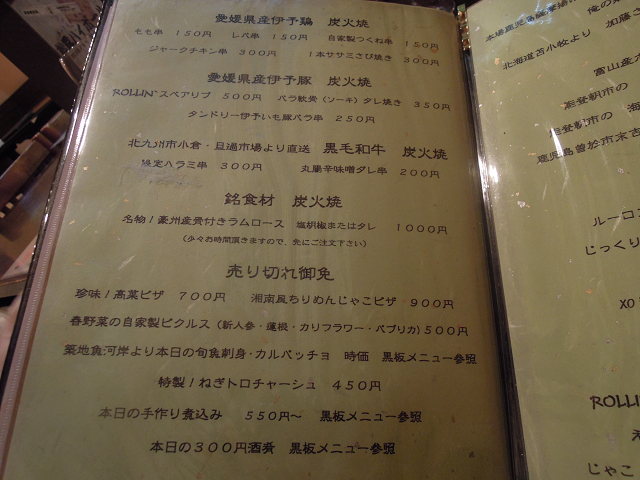 愛媛県産伊予鶏 炭火焼
もも串 150円 レバ串 150円 自家製つくね串 150円
ジャークチキン串 300円 1本ササミさび焼き 300円
愛媛県産伊予豚 炭火焼
ROLLIN'スペアリブ 500円 バラ軟骨(ソーキ)タレ焼き 350円
タンドリー伊予いも豚バラ串 250円
北九州市小倉・旦過市場より直送 黒毛和牛 炭火焼
限定ハラミ串 300円 丸腸辛味噌タレ串 200円
銘食材 炭火焼
名物!豪州産骨付きラムロース 塩胡椒またはタレ 1000円
(少々お時間頂きますので、先にご注文下さい)
売り切れ御免
珍味!高菜ピザ 700円 湘南風ちりめんじゃこピザ 900円
春野菜の自家製ピクルス(新人参・蓮根・カリフラワー・パプリカ)500円
築地魚河岸より本日の旬魚刺身・カルパッチョ 時価 黒板メニュー参照
特製!ねぎトロチャーシュ 450円
本日の手作り煮込み 550円~ 黒板メニュー参照
本日の300円酒肴 黒板メニュー参照
本場鹿児島薩摩揚
俺の
北海道苫小牧より 加藤さ
富山産
能登朝市の
能登朝市の 海
鹿児島曽於市末吉
ルーロ
じっくり
XO
ROLLIN'
じゃこ